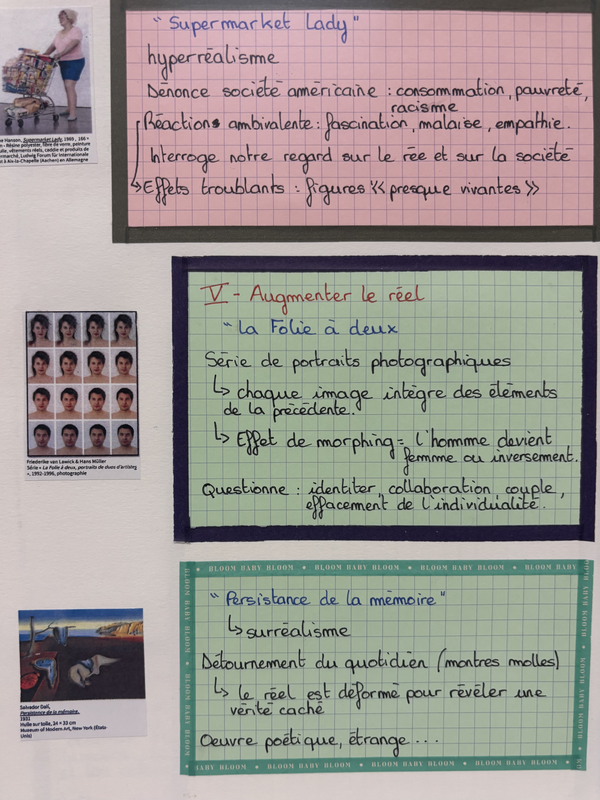 "Supermarket Lady"
hyperréalisme
Dénonce société américaine : consommation, pauvreté,
racisme
Réactions ambivalente : fascination, malaise, empathie.
Interroge notre regard sur le rée et sur la société
↳ Effets troublants : figures << presque vivantes >>
e Hanson, Supermarket Lady, 1969, 166 ×
- Résine polyester, fibre de verre, peinture
uile, vêtements réels, caddie et produits de
permarché, Ludwig Forum für Internationale
t à Aix-la-Chapelle (Aachen) en Allemagne
V - Augmenter le réel
"La Folie à deux
Série de portraits photographiques
↳ chaque image intègre des éléments
de la précédente.
↳ Effet de morphing = l'homme devient
femme ou inversement.
Questionne : identiter, collaboration, couple,
effacement de l'individualité.
Friederike van Lawick & Hans Müller
Série « La Folie à deux, portraits de duos d'artistes
», 1992-1996, photographie
BLOOM BABY BLOOM • BLOOM BABY BLOOM • BLOOM BABY BLOOM • BLOOM BABY
"Persistance de la mémoire"
↳ surréalisme
Détournement du quotidien (montres molles)
↳ le réel est déformé pour révéler une
vérité caché
Oeuvre poétique, étrange...
BABY BLOOM • BLOOM BABY BLOOM • BLOOM BABY BLOOM • BLOOM BABY BLOOM
Salvador Dalí,
Persistance de la mémoire,
1931
Huile sur toile, 24 × 33 cm
Museum of Modern Art, New York (États-
Unis)